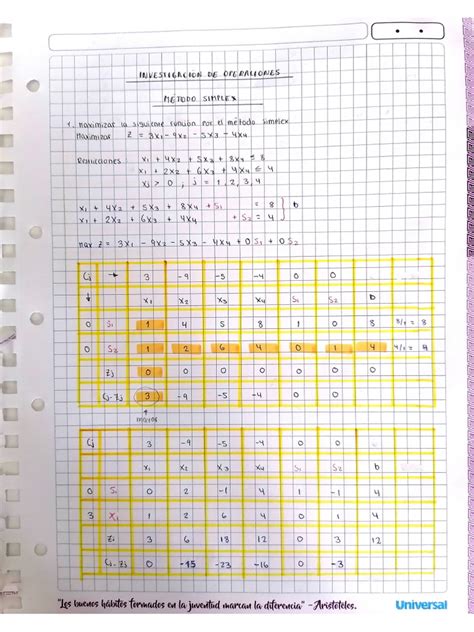 INVESTIGACION DE OPERACIONES
METODO SIMPLEX
1. Maximizar la siguiente función por el método simplex
Maximizar Z = 3x1 - 9x2 - 5x3 - 4x4
Restricciones: x1 + 4x2 + 5x3 + 8x4 ≤ 8
x1 + 2x2 + 6x3 + 4x4 ≤ 4
xj > 0, j = 1, 2, 3, 4
x1 + 4x2 + 5x3 + 8x4 + S1 = 8 } b
x1 + 2x2 + 6x3 + 4x4 + S2 = 4
max Z = 3x1 - 9x2 - 5x3 - 4x4 + 0S1 + 0S2
Cj → 3 -9 -5 -4 0 0
↓ x1 x2 x3 x4 S1 S2 b
0 S1 1 4 5 8 1 0 8 8/1 = 8
0 S2 1 2 6 4 0 1 4 4/1 = 4
Zj 0 0 0 0 0 0 0
Cj-Zj 3 -9 -5 -4 0 0
↑
mayor
Cj 3 -9 -5 -4 0 0
x1 x2 x3 x4 S1 S2 b
0 S1 0 2 -1 4 1 -1 4
3 x1 1 2 6 4 0 1 4
Zj 3 6 18 12 0 3 12
Cj-Zj 0 -15 -23 -16 0 -3
"Los buenos hábitos formados en la juventud marcan la diferencia" - Aristóteles.
Universal